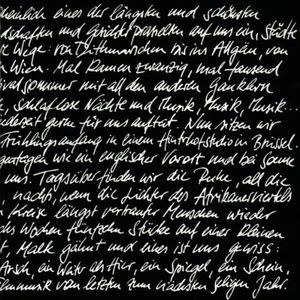 heinlich eines der längsten und schönsten
schaften und Gesichter prasselten auf uns ein, Städte
r Wege: von Dithmarschen bis ins Allgäu, von
n Wien. Mal kamen zwanzig, mal tausend
ivalsommer mit all den anderen Gauklern
, schlaflose Nächte und Musik, Musik, Musik...
iederzeit gern für uns auftat. Nun sitzen wir
Frühlingsanfang in einem Hinterhofstudio in Brüssel.
wie ein englischer Vorort und bei Sonne
uns. Tagsüber finden wir die Ruhe, all die
, nachts, wenn die Lichter des Afrikanerviertels
Kreis längst vertrauter Menschen wieder
Wochen fünfzehn Stücke auf einer kleinen
t. Malk gähnt und eines ist uns gewiss:
Arsch, ein Hier, ein Spiegel, ein Schein,
vom letzten zum nächsten Jahr.